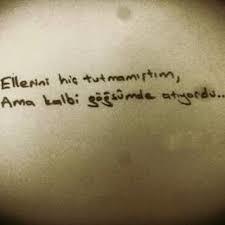 Ellerini hiç tutmamıştım,
Ama kalbi göğsümde atıyordu..